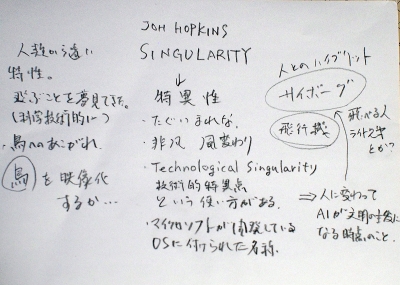 JOH HOPKINS
SINGULARITY
↓
特異性
・たぐいまれな。
・非凡 風変わり
・Technological Singularity
技術的特異点
という使い方がある。
・マイクロソフトが開発している
OSに付けられた名称。
人類から遠い
特性。
飛ぶことを夢見てきた。
(科学技術的に)
・鳥へのあこがれ。
鳥を映像化
するか…
人とのハイブリット
サイボーグ
飛行機
飛べる人
ライト兄弟
とか?
⇒人に変わって
AIが文明の主役に
なる時点のこと。